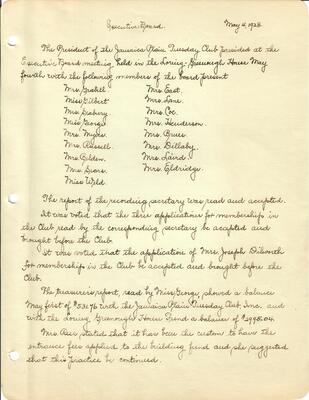 Executive Board. May 4, 1928
The President of the Jamaica Plain Tuesday Club presided at the
Executive Board meeting, held in the Loring-Greenough House May
fourth with the following members of the board present
Mrs. East.
Miss Gilbert Mrs. Lane.
Mrs. Seabery Mrs. Coe.
Miss George Mrs. Henderson.
Mrs. Myers. Mrs. Bruce
Mrs. Russell. Mrs. Dillaby.
Mrs. Gilden. Mrs. Laird.
Mrs. Sears. Mrs. Eldridge.
Miss Wild.
The report of the recording secretary was read and accepted.
It was voted that the three applications for membership in
the Club read by the corresponding secretary be accepted and
brought before the Club.
It was voted that the application of Mrs. Joseph Dilworth
for membership in the Club be accepted and brought before the
Club.
The treasurer's report, read by Miss George, showed a balance
May first of with the Jamaica Plain Tuesday Club, Inc. and
with the Loring Greenough House Fund a balance of
Mrs. stated that it has been the custom to have the
entrance fees applied to the building fund and she suggested
that this practice be continued.